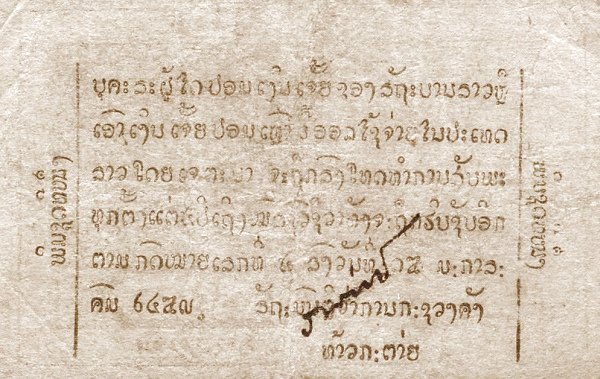 ບຸຄະລະຜູ້ໃດປອມເງິນເຈັ້ຍຂອງລັຖະບານລາວຫຼື
ເອົາເງິນເຈັ້ຍປອມເຫຼົ່ານີ້ອອກໃຊ້ຈ່າຍໃນປະເທດ
ລາວໂດຍເຈຕະນາ ຈະຖືກລົງໂທດທຳການ
ທຸກຕັ້ງແຕ່ ປີເຖິງ ຈະຖືກຮິບຊັບອີກ
ຕາມກົດໝາຍເລກທີ່ ລົງວັນທີ່ ມະກາລະ
ຄົມ ລັຖະມົນຕີວ່າການກະຊວງຄັງ
ທ້າວກະຕ່າຍ